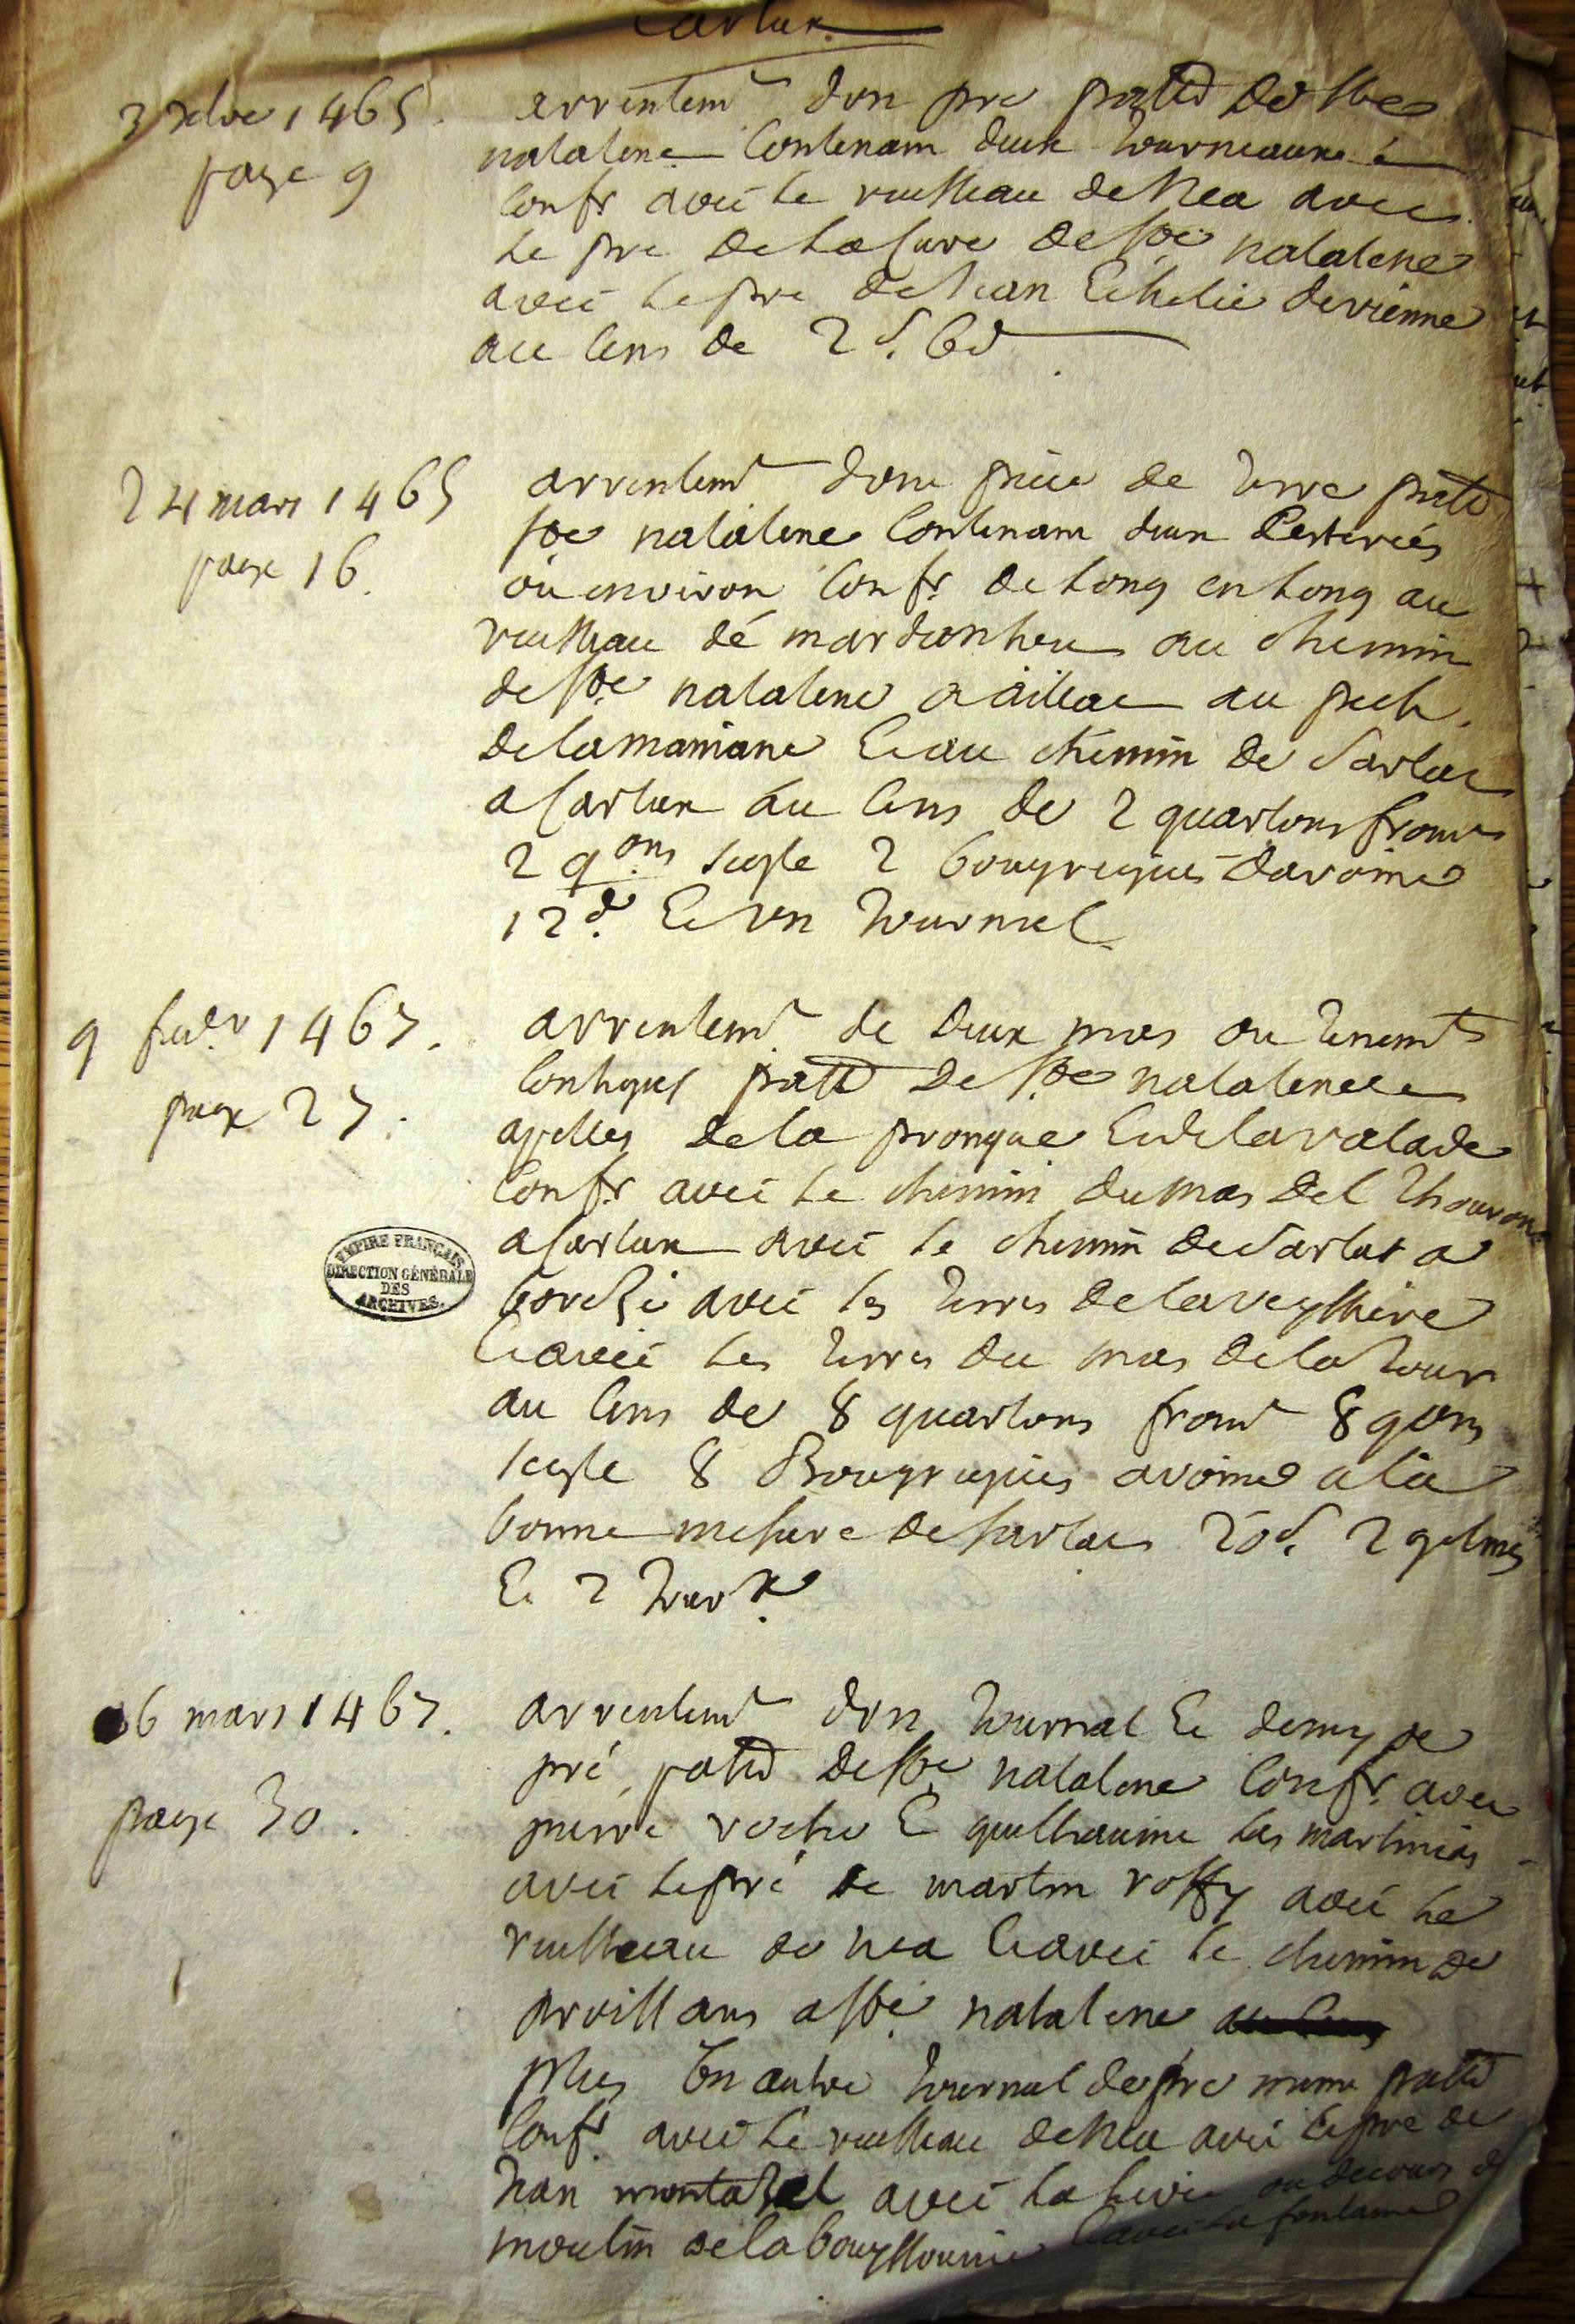 Carlux
3 xbre 1465.
page 9
arrentemt d'un pre parse de Ste
natalene contenant deux journeaux é
confr avec le ruisseau de Nea avec
le pre de la Cure de Ste natalene
avec le pre de Jean Echelié de vienne
au cens de 2 s. 6 d
24 mars 1465
page 16.
arrentemt d'une piece de terre parse
Ste natalene contenant deux sesterées
ou environ confr. de long en long au
ruisseau de au chemin
de Ste natalene a aillac au pech
de lamaniane et au chemin de Sarlat
a Carlux au cens de 2 quartons fromt
2 qons segle 2 d'avoine
12 d. et un journal
9 fevr 1467.
page 27.
arrentemt de deux mas ou tenemts
contigus parse de Ste natalene
apelles de la pronque et de la valade
confr avec le chemin du mas del
a Carlux avec le chemin de Sarlat a
avec les terres de la veyssiere
et avec les terres du mas de la tour
au cens de 8 quartons fromt 8 qons
segle 8 avoine a la
bonne mesure de Sarlat 20 s. 2 gelines
et 2
EMPIRE FRANÇAIS
DIRECTION GÉNÉRALE
DES
ARCHIVES.
6 mars 1467.
page 30.
arrentemt d'un journal et demy de
pré parse de Ste natalene confr. avec
pierre roche et guilhaume las martinias
avec le pré de martin roffy avec le
ruisseau de nea et avec le chemin de
prouillans a Ste natalene
plus un autre journal de pre meme parse
confr avec le ruisseau de Nea avec le pre de
Jean montazel avec la ou decours de
moulin de la et avec la fontaine